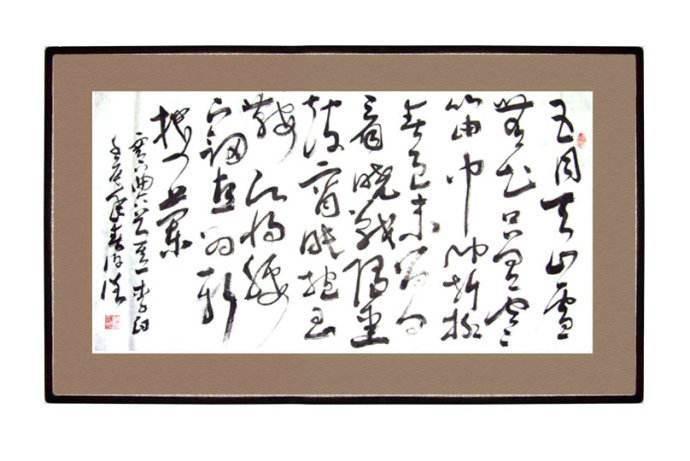 五月天山雪
無花只有寒
笛中聞折柳
春色未曾
看曉戰隨金
鼓宵眠抱玉
鞍願將腰
下劍直為斬
樓蘭
塞下曲六首其一李白
年春